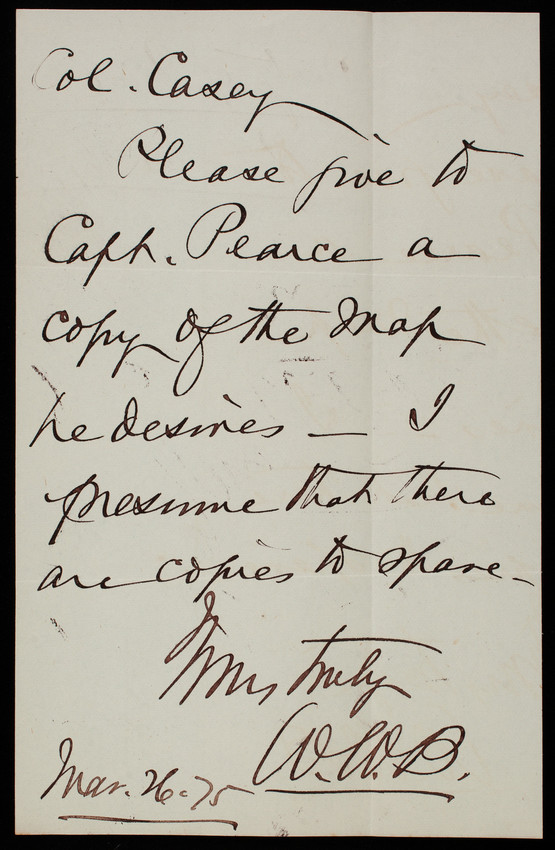 Col. Casey
Please give to
Capt. Pearce a
copy of the map
he desires — I
presume that there
are copies to spare —
Yours truly
W.W.B.
Mar. 26 - 75